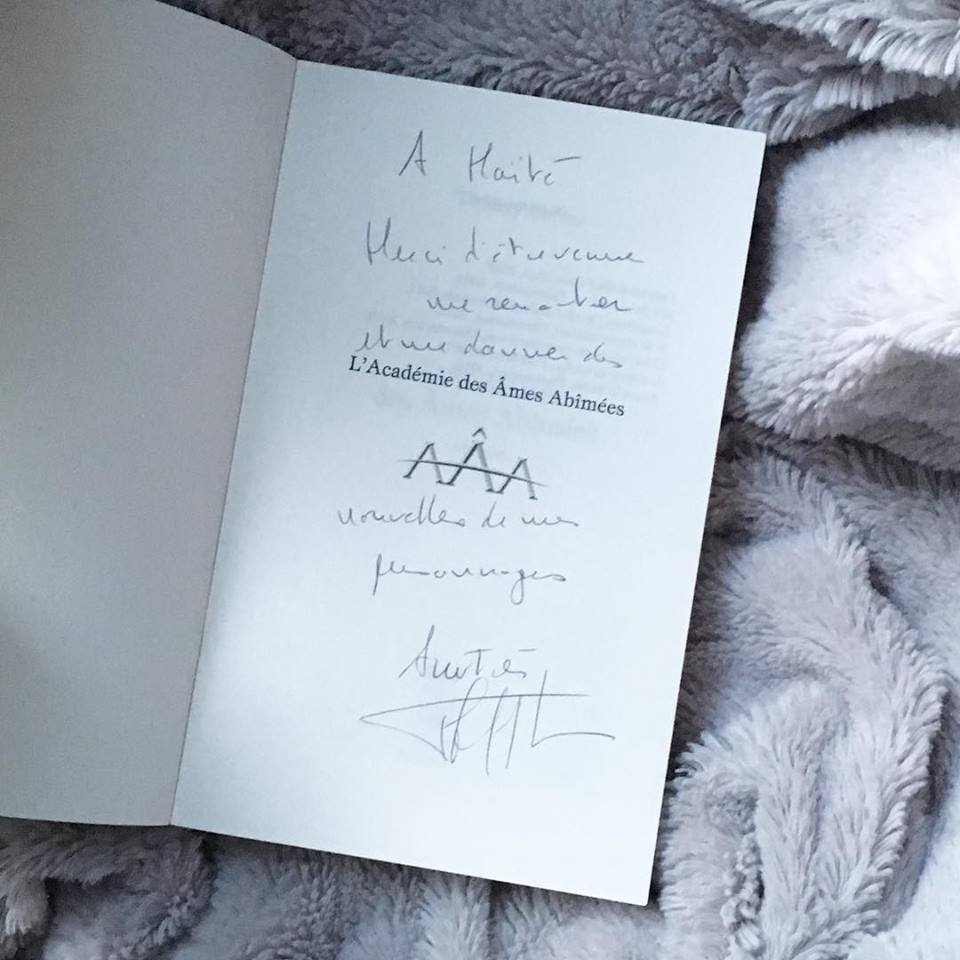 A Maïté
Merci d'être venue
me rencontrer
et me donner des
L'Académie des Âmes Abîmées
AÂA
nouvelles de mes
personnages
Amitiés